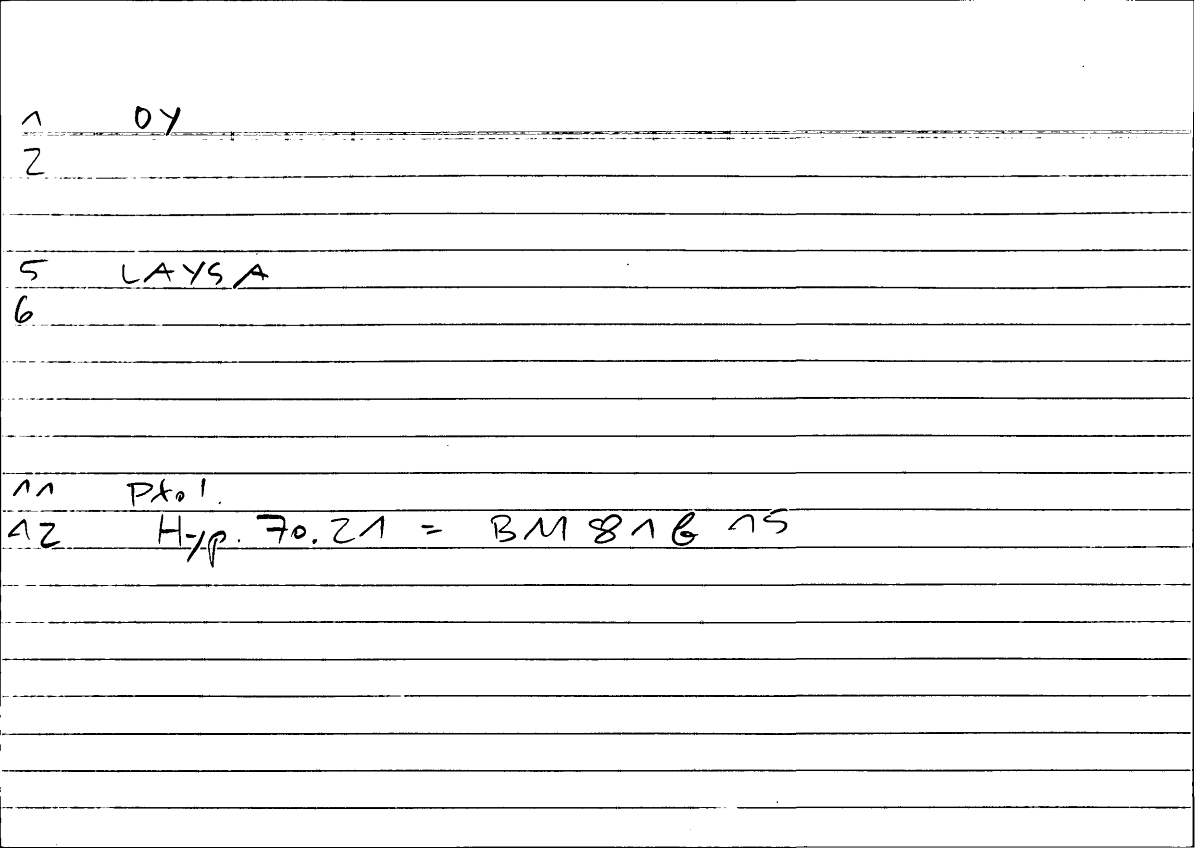 1 OY
2
5 LAYSA
6
11 Ptol.
12 Hyp. 70.21 = BM 81 6 15